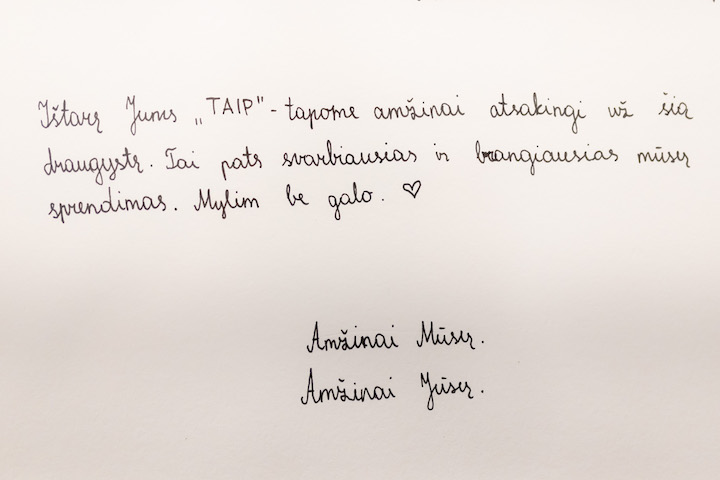 Ištarę Jums „TAIP" - tapome amžinai atsakingi už šią
draugystę. Tai pats svarbiausias ir brangiausias mūsų
sprendimas. Mylim be galo. ♡
Amžinai Mūsų.
Amžinai Jūsų.